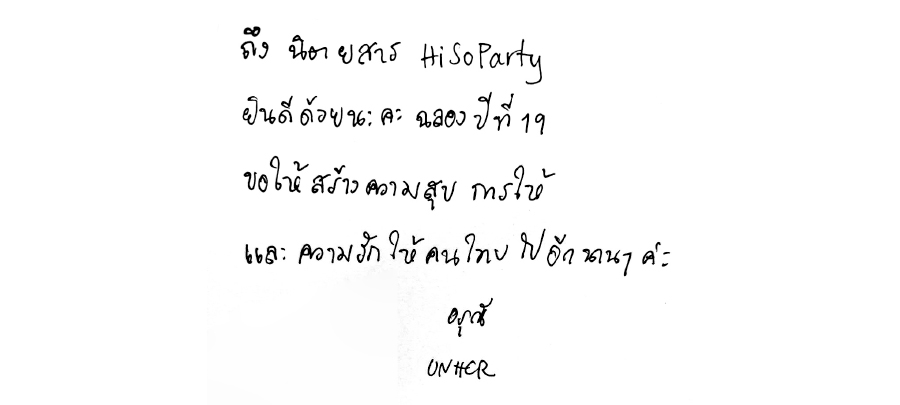 ถึง นิตยสาร HiSoParty
ยินดีด้วยนะคะ ฉลองปีที่ 19
ขอให้สร้างความสุข การให้
และความรักให้คนไทยไปอีกนานๆ ค่ะ
อรุณี
UNHCR